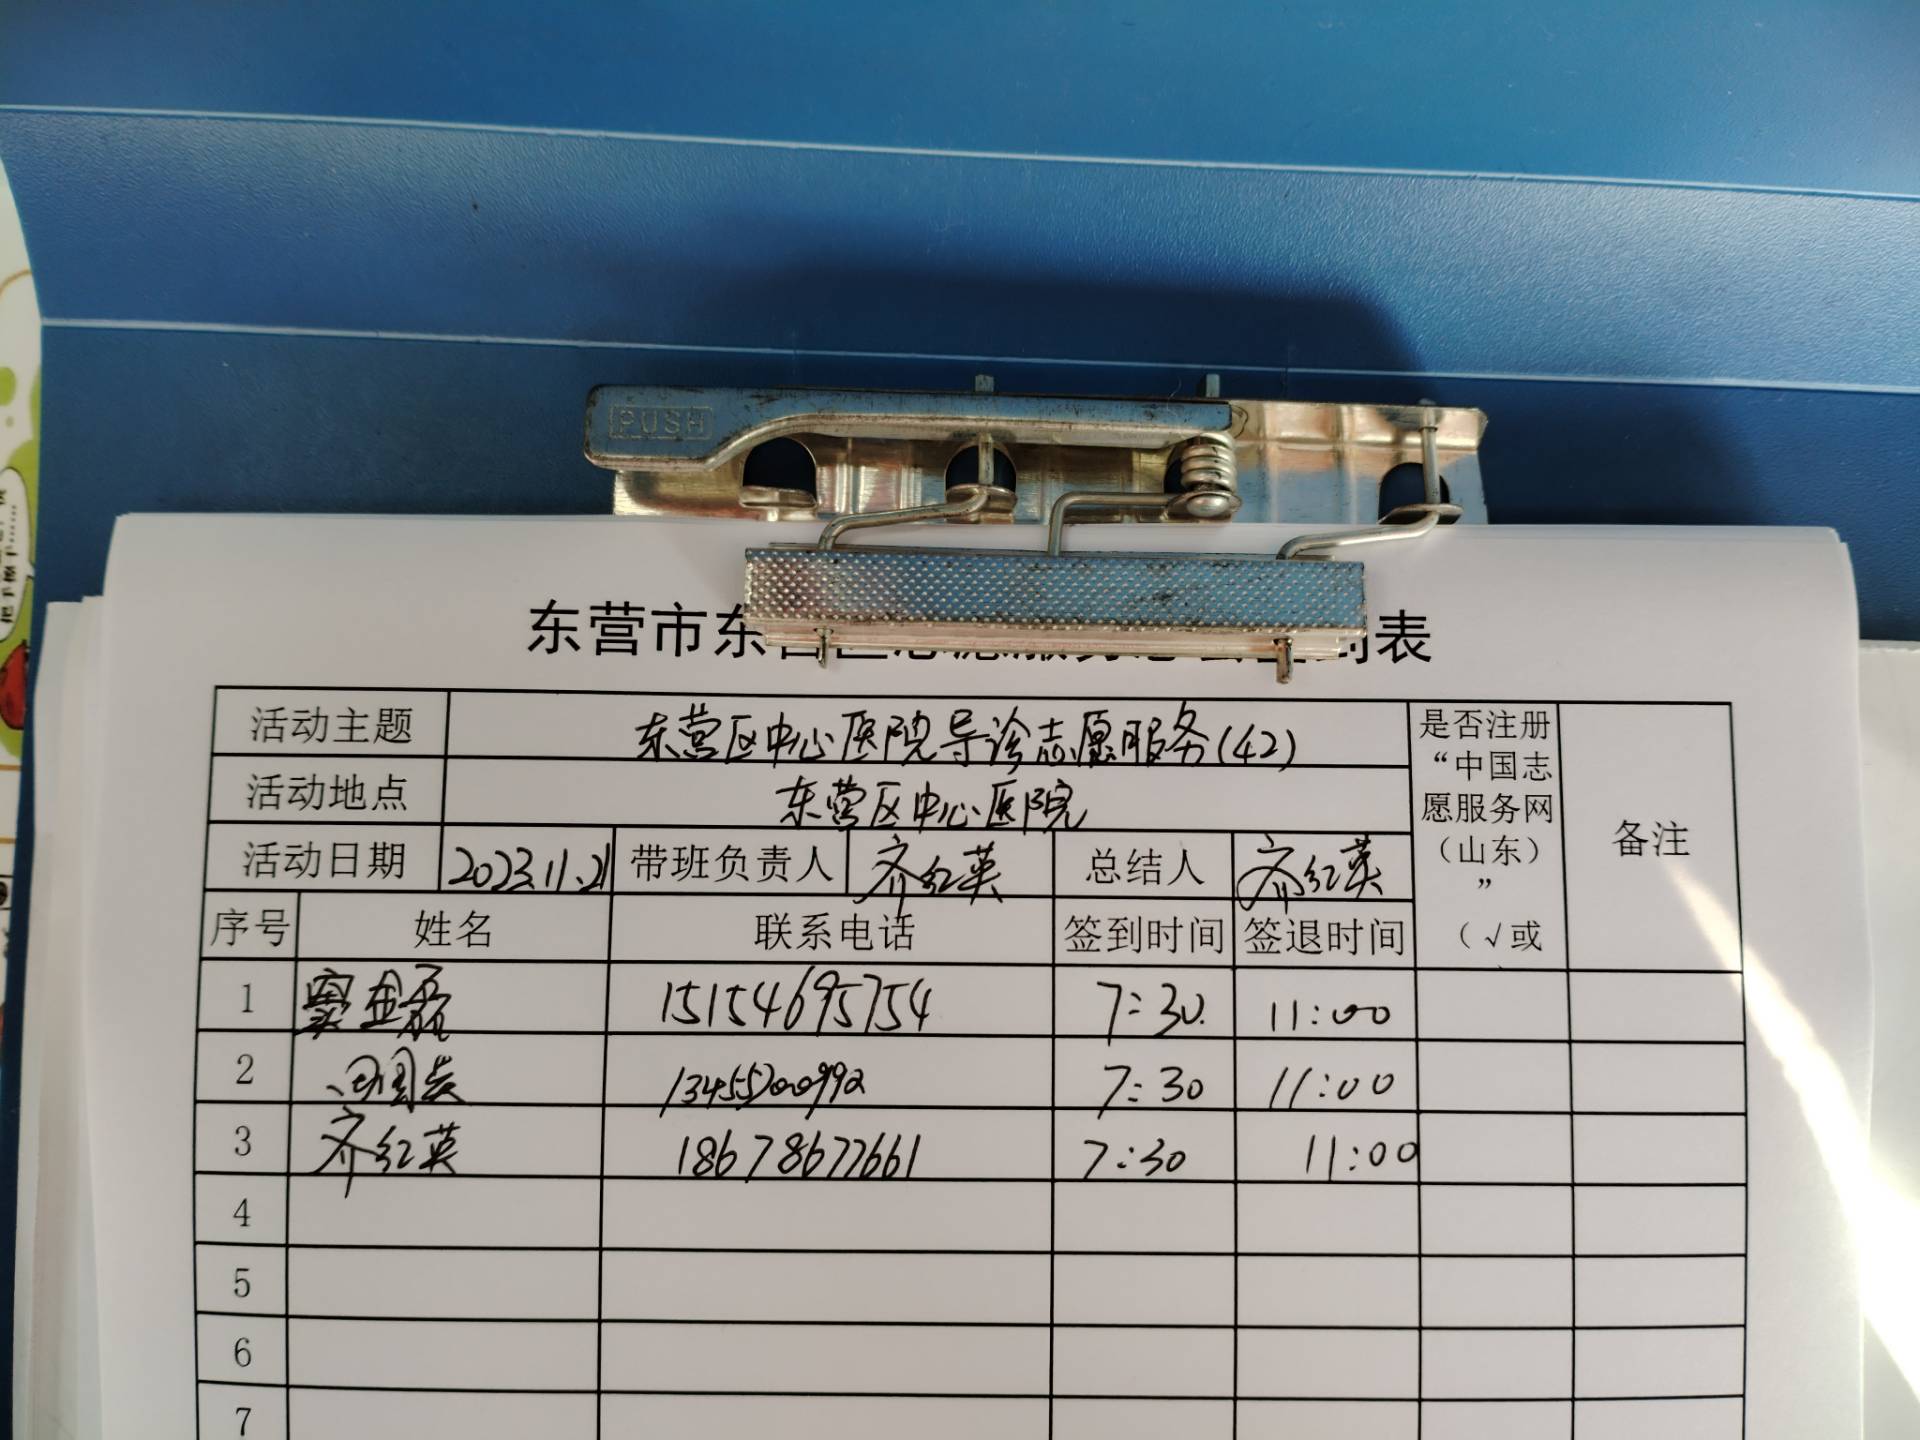 PUSH
东营市东营区志愿服务 表
活动主题 东营区中心医院导诊志愿服务(42) 是否注册“中国志愿服务网（山东）”（√或 备注
活动地点 东营区中心医院
活动日期 2023.11.21 带班负责人 齐红英 总结人 齐红英
序号 姓名 联系电话 签到时间 签退时间
1 15154695754 7:30 11:00
2 13455200992 7:30 11:00
3 齐红英 18678677661 7:30 11:00
4
5
6
7